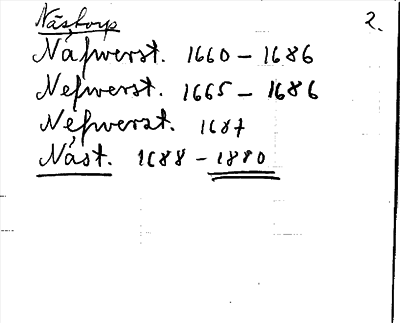 Nästorp 2.
Näfwerst. 1660 - 1686
Nefwerst. 1665 - 1686
Nefwerzt. 1687
Näst. 1688 - 1880